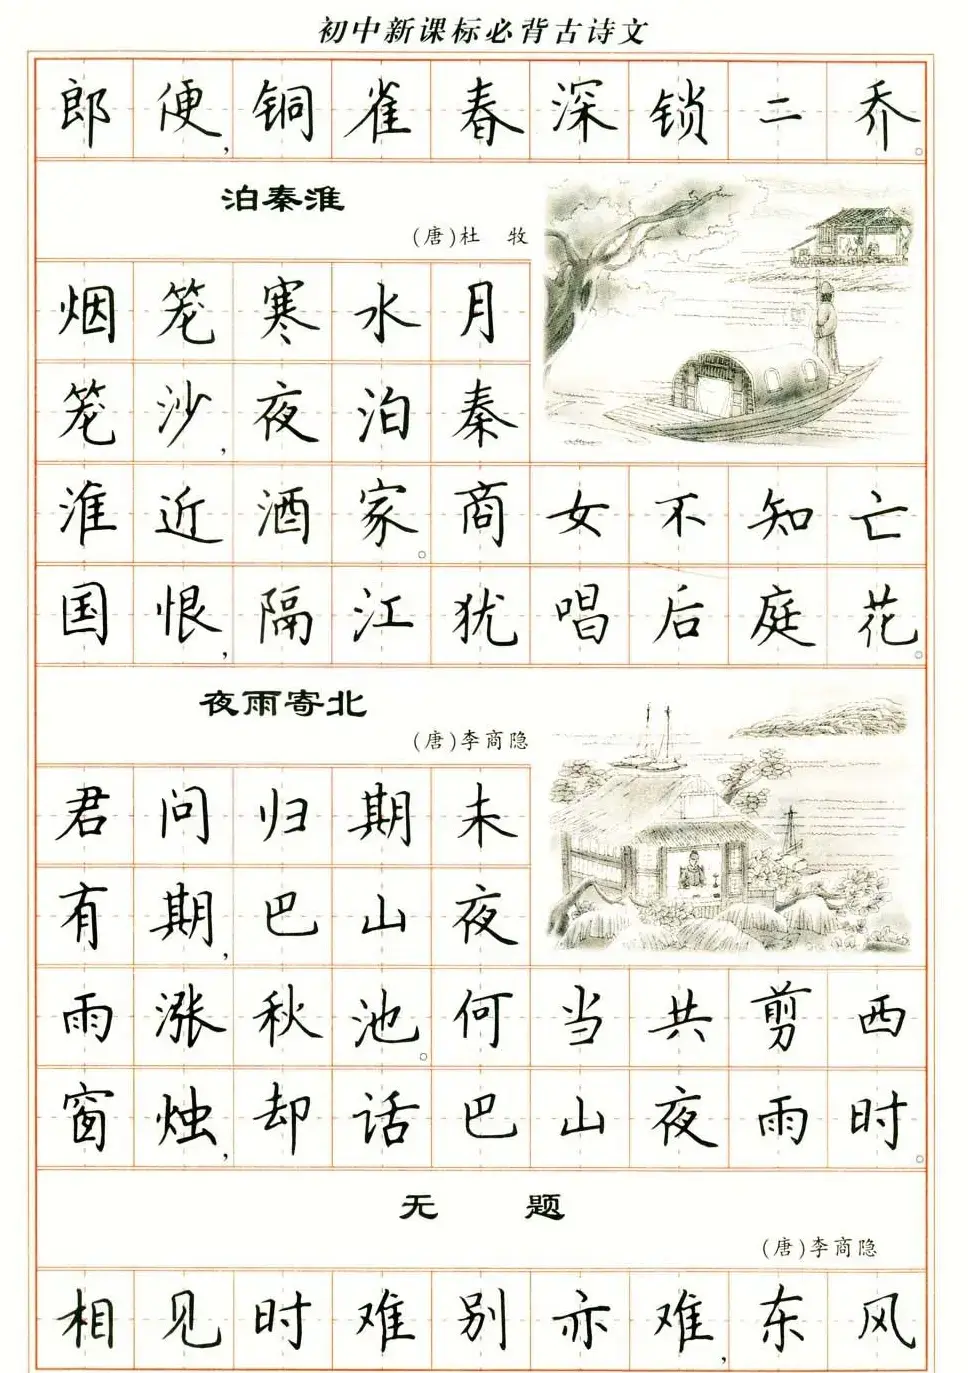 初中新课标必背古诗文
郎便,铜雀春深锁二乔。
泊秦淮
(唐)杜 牧
烟笼寒水月
笼沙,夜泊秦
淮近酒家。商女不知亡
国恨,隔江犹唱后庭花。
夜雨寄北
(唐)李商隐
君问归期未
有期,巴山夜
雨涨秋池。何当共剪西
窗烛,却话巴山夜雨时。
无 题
(唐)李商隐
相见时难别亦难,东风